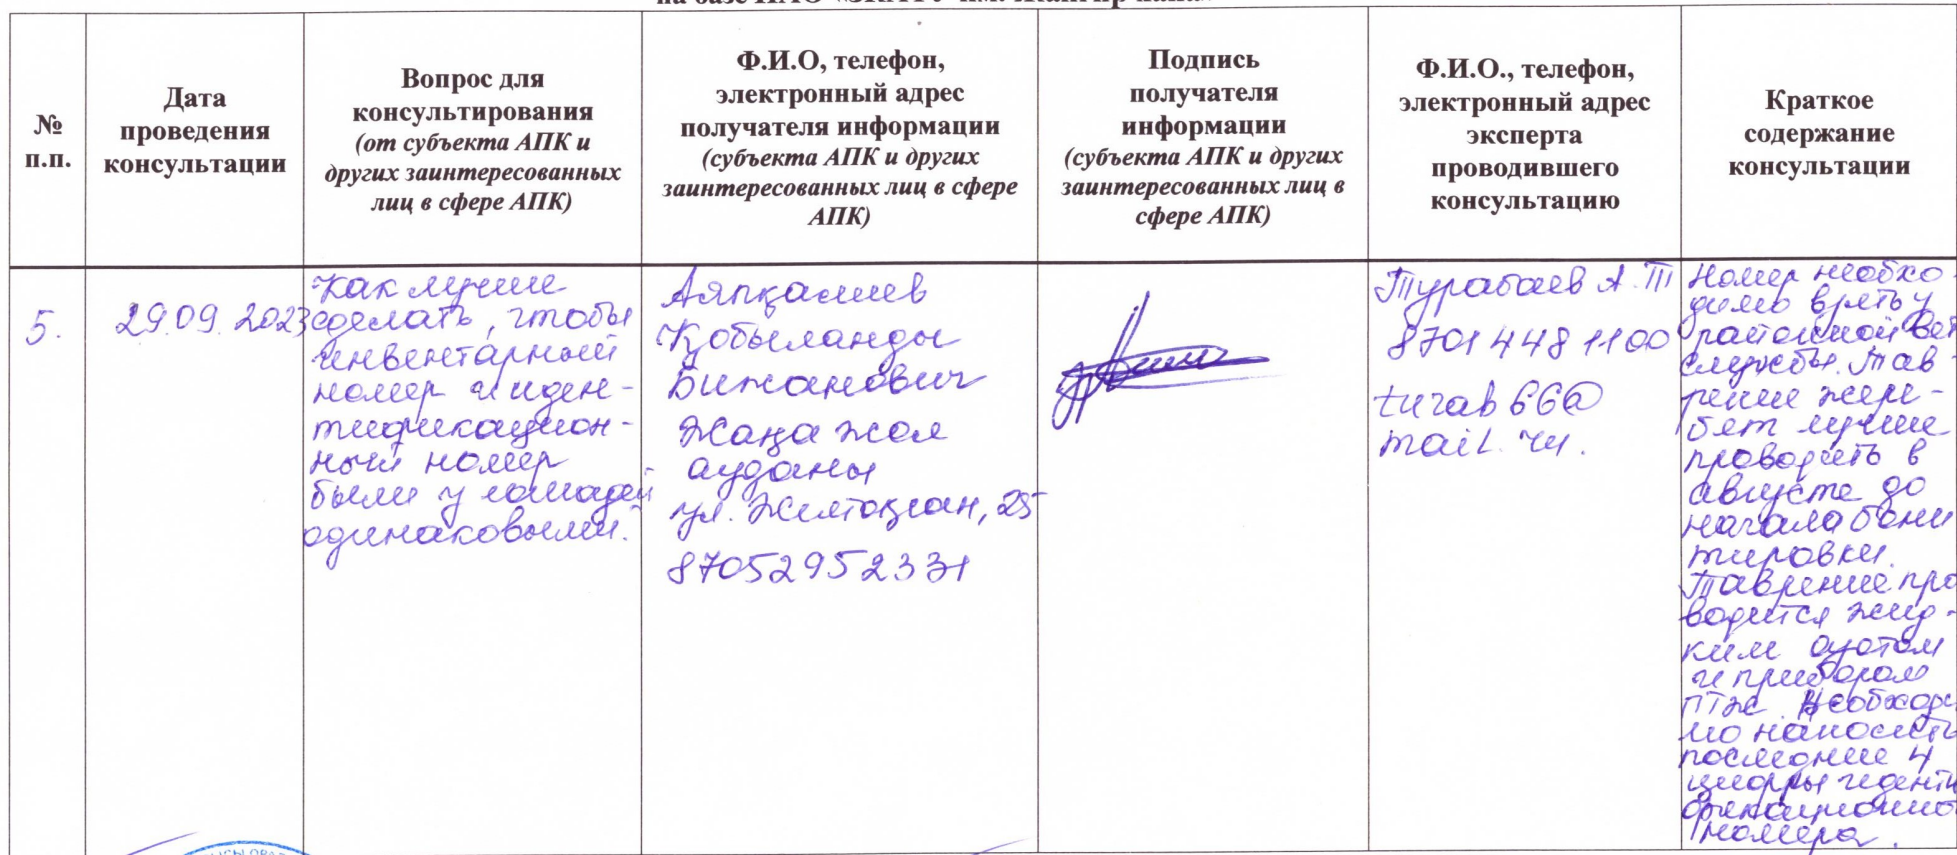 №
п.п.
Дата
проведения
консультации
Вопрос для
консультирования
(от субъекта АПК и
других заинтересованных
лиц в сфере АПК)
Ф.И.О, телефон,
электронный адрес
получателя информации
(субъекта АПК и других
заинтересованных лиц в сфере
АПК)
Подпись
получателя
информации
(субъекта АПК и других
заинтересованных лиц в
сфере АПК)
Ф.И.О., телефон,
электронный адрес
эксперта
проводившего
консультацию
Краткое
содержание
консультации
5.
29.09.2023
Как лучше
сделать, чтобы
инвентарный
номер и иден-
тификацион-
ный номер
были у лошадей
одинаковыми.
Аяпқалиев
Қобыланды
Бижанович
Жаңа жол
ауданы
ул. Желтоқсан, 25
87052952331
Турабаев А.Т
8701 448 1100
turab 66@
mail. ru.
Номер необхо
димо взять у
районной вет
службы. Тав
рение жере-
бят лучше
проводить в
августе до
начала бони
тировки.
Таврение про
водится жид-
ким азотом
и прибором
ПТЖ. Необходи
мо наносить
последние 4
цифры иденти
фикационно
номера.